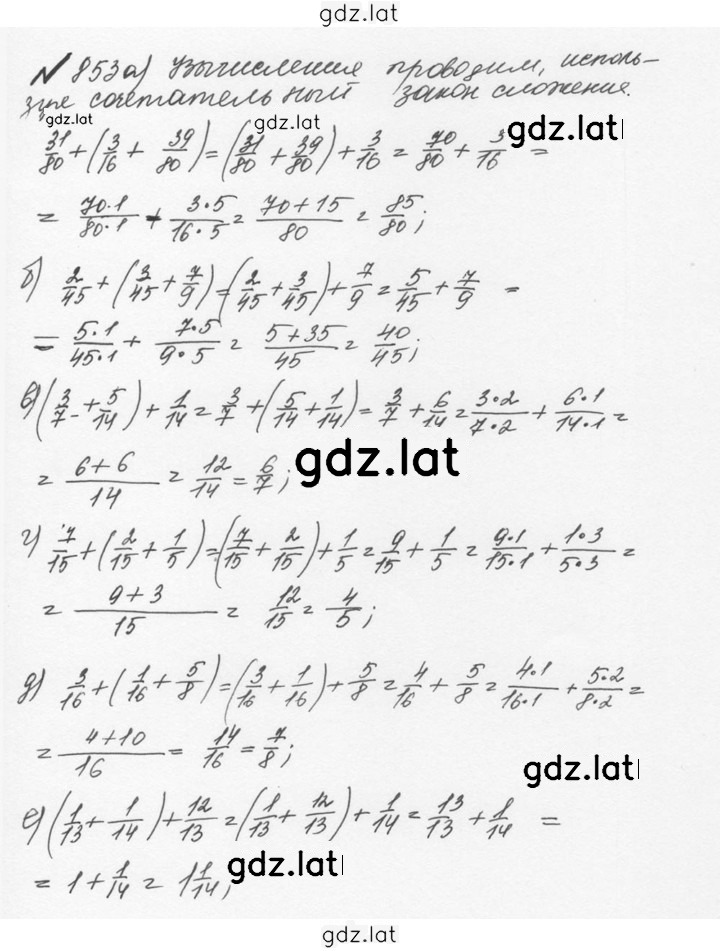 gdz.lat
№ 853 а) Вычисления проводим, исполь-
зуя сочетательный закон сложения.
gdz.lat gdz.lat gdz.lat
31/80 + (3/16 + 39/80) = (31/80 + 39/80) + 3/16 = 70/80 + 3/16 =
= 70·1/80·1 + 3·5/16·5 = 70+15/80 = 85/80;
б) 2/45 + (3/45 + 7/9) = (2/45 + 3/45) + 7/9 = 5/45 + 7/9 =
= 5·1/45·1 + 7·5/9·5 = 5+35/45 = 40/45;
в) (3/7 + 5/14) + 1/14 = 3/7 + (5/14 + 1/14) = 3/7 + 6/14 = 3·2/7·2 + 6·1/14·1 =
gdz.lat
= 6+6/14 = 12/14 = 6/7;
г) 7/15 + (2/15 + 1/5) = (7/15 + 2/15) + 1/5 = 9/15 + 1/5 = 9·1/15·1 + 1·3/5·3 =
= 9+3/15 = 12/15 = 4/5;
д) 3/16 + (1/16 + 5/8) = (3/16 + 1/16) + 5/8 = 4/16 + 5/8 = 4·1/16·1 + 5·2/8·2 =
= 4+10/16 = 14/16 = 7/8;
gdz.lat
е) (1/13 + 1/14) + 12/13 = (1/13 + 12/13) + 1/14 = 13/13 + 1/14 =
= 1 + 1/14 = 1 1/14;
gdz.lat
gdz.lat